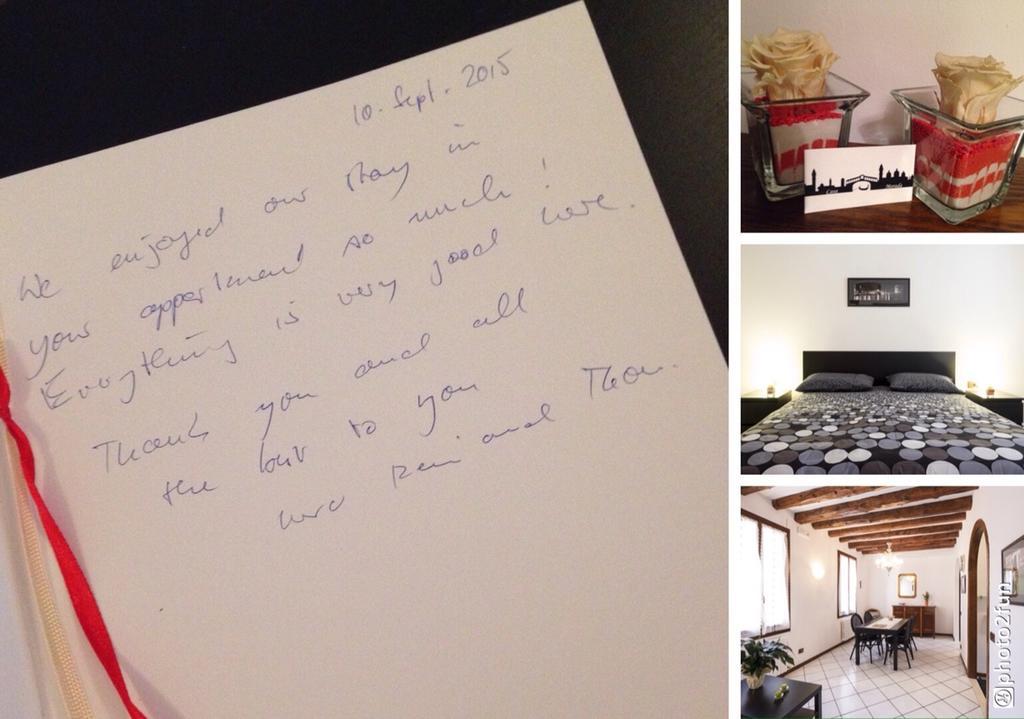 10. Sept. 2015
We enjoyed our stay in
your appartment so much!
Everything is very good here.
Thank you and all
the best to you
and Theo.
Casa
@photo2fun